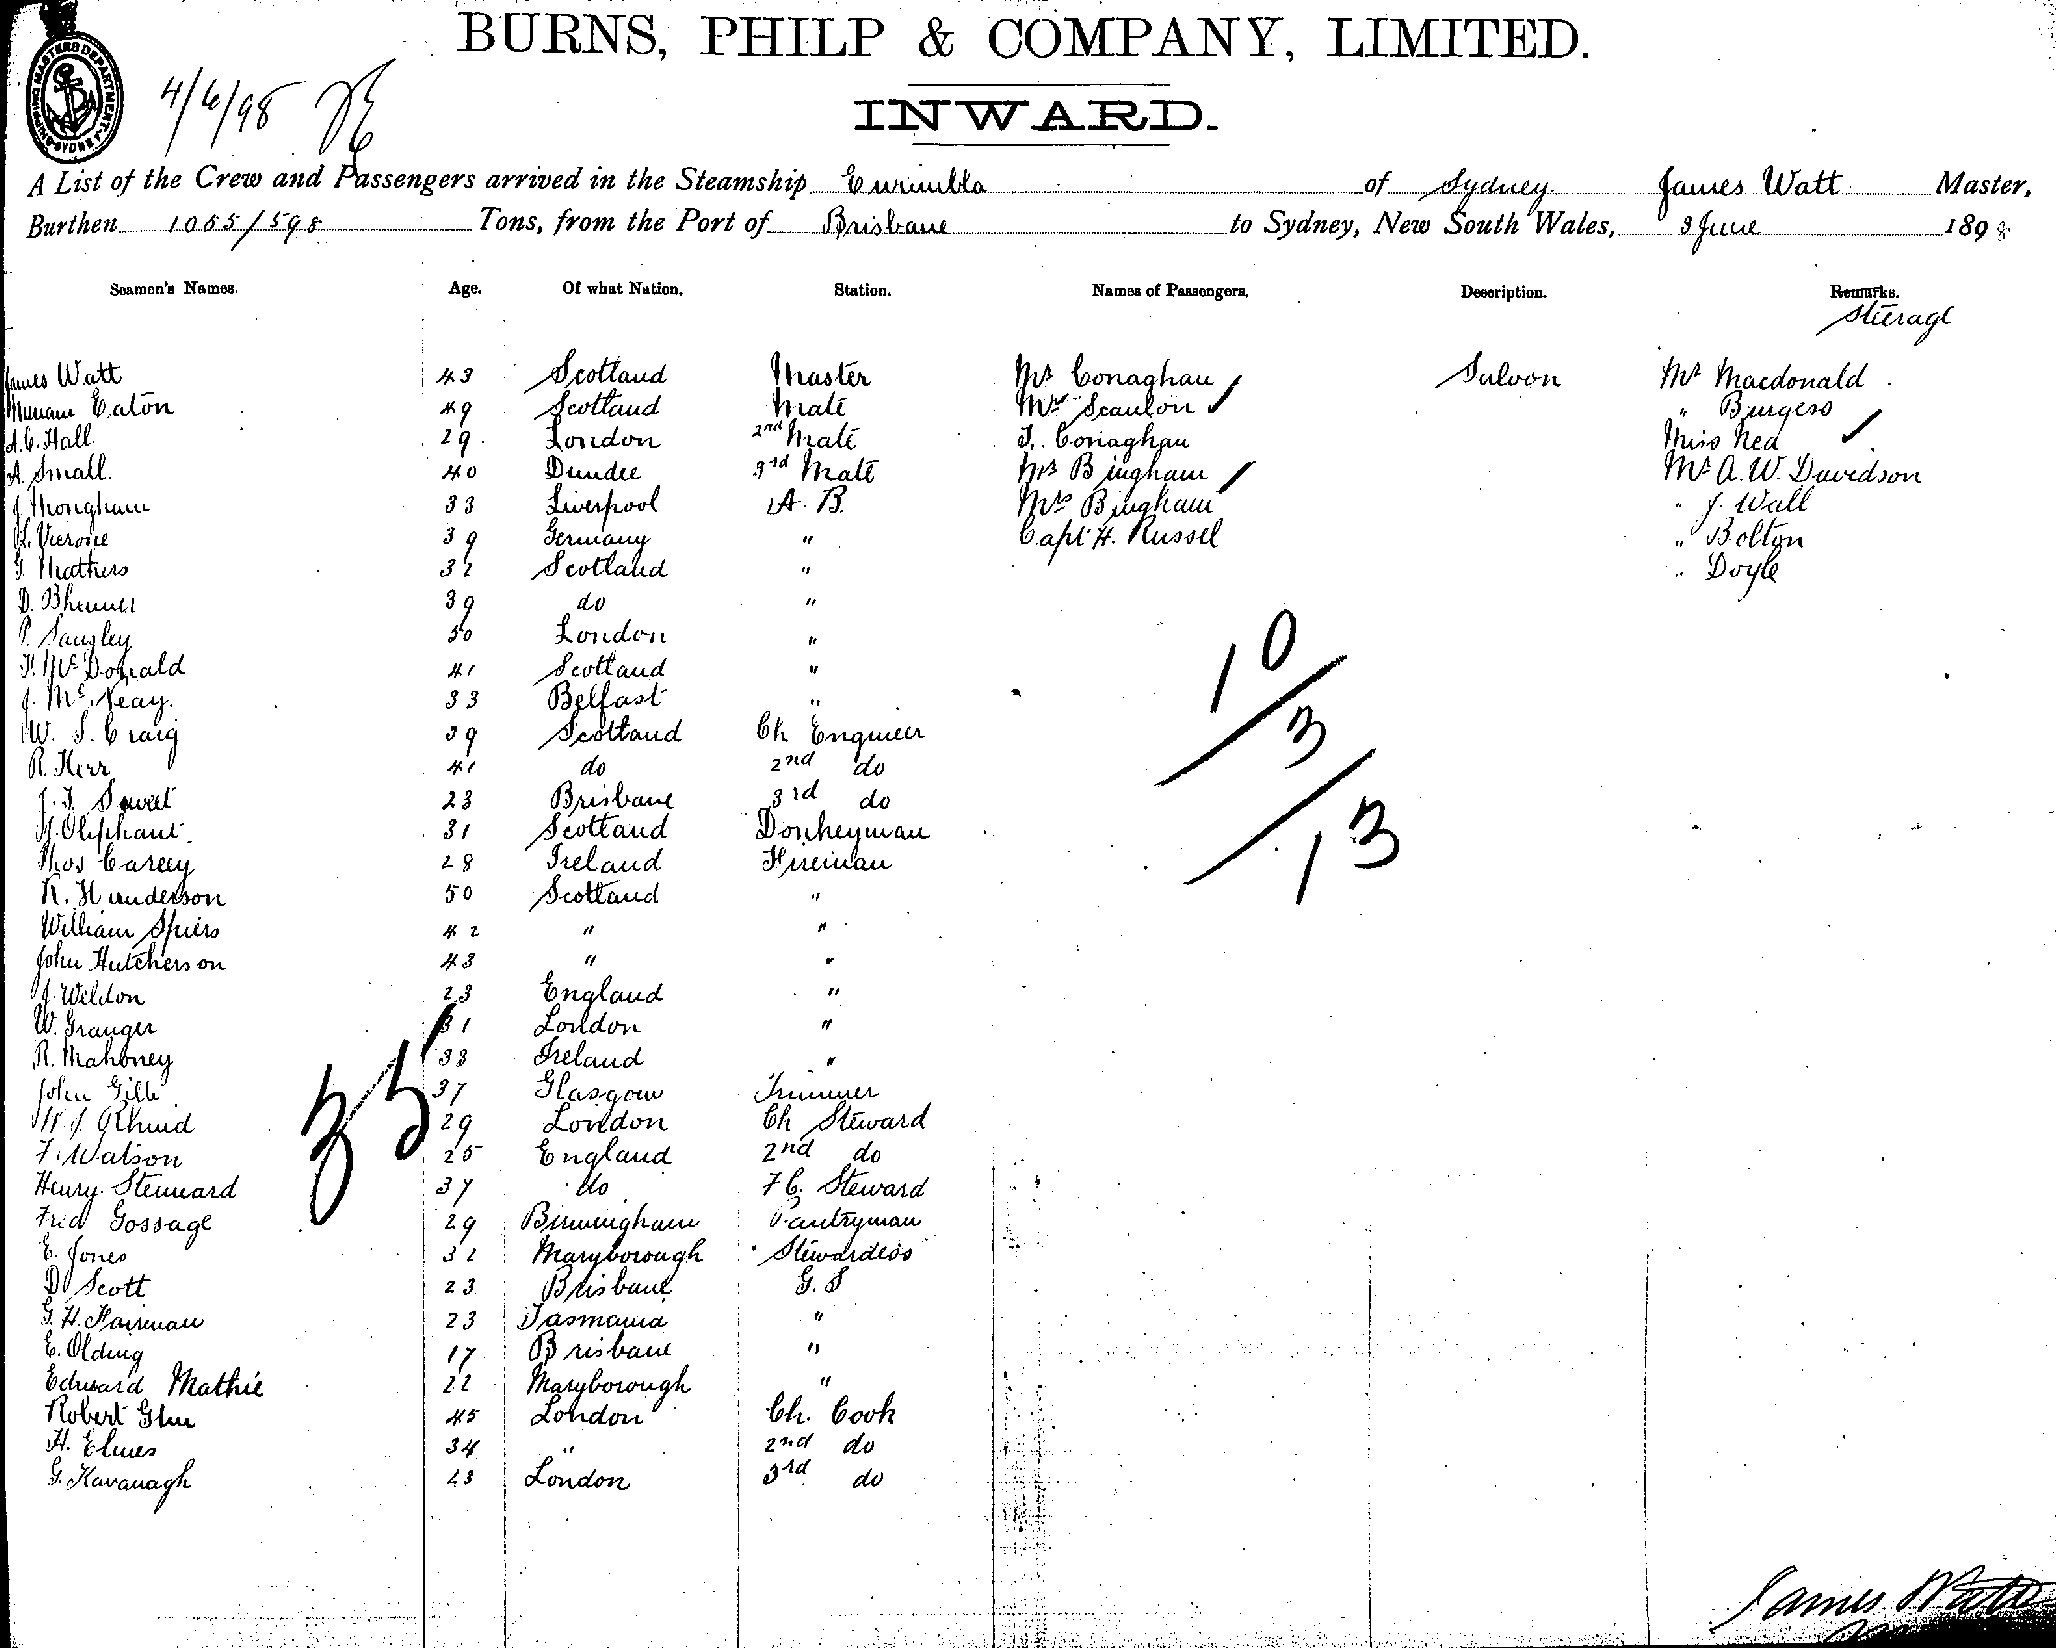 BURNS, PHILP & COMPANY, LIMITED.
4/6/98
INWARD.
A List of the Crew and Passengers arrived in the Steamship Eurimbla of Sydney James Watt Master,
Burthen 1055/598 Tons, from the Port of Brisbane to Sydney, New South Wales, 3 June 1898
Seamen's Names. Age. Of what Nation. Station. Names of Passengers. Description. Remarks.
Steerage
James Watt 43 Scotland Master Mr Conaghan Saloon Mr Macdonald
Eaton 49 Scotland Mate Mrs Scanlon " Burgess
A.C. Hall 29 London 2nd Mate T. Conaghan Miss Nea
A. Small 40 Dundee 3rd Mate Mr Bingham Mr A. W. Davidson
J. Mongham 33 Liverpool A. B. Mrs Bingham " J. Wall
39 Germany " Capt H. Russel " Bolton
G. Mathers 32 Scotland " " Doyle
D. 39 do "
P. Langley 50 London "
McDonald 41 Scotland "
J. McNeay 33 Belfast "
W. S. Craig 39 Scotland Ch Engineer
R. Kerr 41 do 2nd do
J. T. Sweet 23 Brisbane 3rd do
Oliphant 31 Scotland Donkeyman
Thos Carley 28 Ireland Fireman
R. Hunderson 50 Scotland "
William Spiers 42 " "
John Hutcherson 43 " "
J. Weldon 23 England "
W. Granger 31 London "
R. Mahoney 33 Ireland "
John Gill 37 Glasgow Trimmer
W J Rhind 29 London Ch Steward
F. Watson 25 England 2nd do
Henry Stennard 37 do F C. Steward
Fred Gossage 29 Birmingham Pantryman
E. Jones 32 Maryborough Stewardess
D Scott 23 Brisbane G. S
G. H. Fairman 23 Tasmania "
E. Olding 17 Brisbane "
Edward Mathie 22 Maryborough "
Robert 45 London Ch. Cook
H. Elmes 34 " 2nd do
G. Kavanagh 23 London 3rd do
35
10/3/13
James Watt